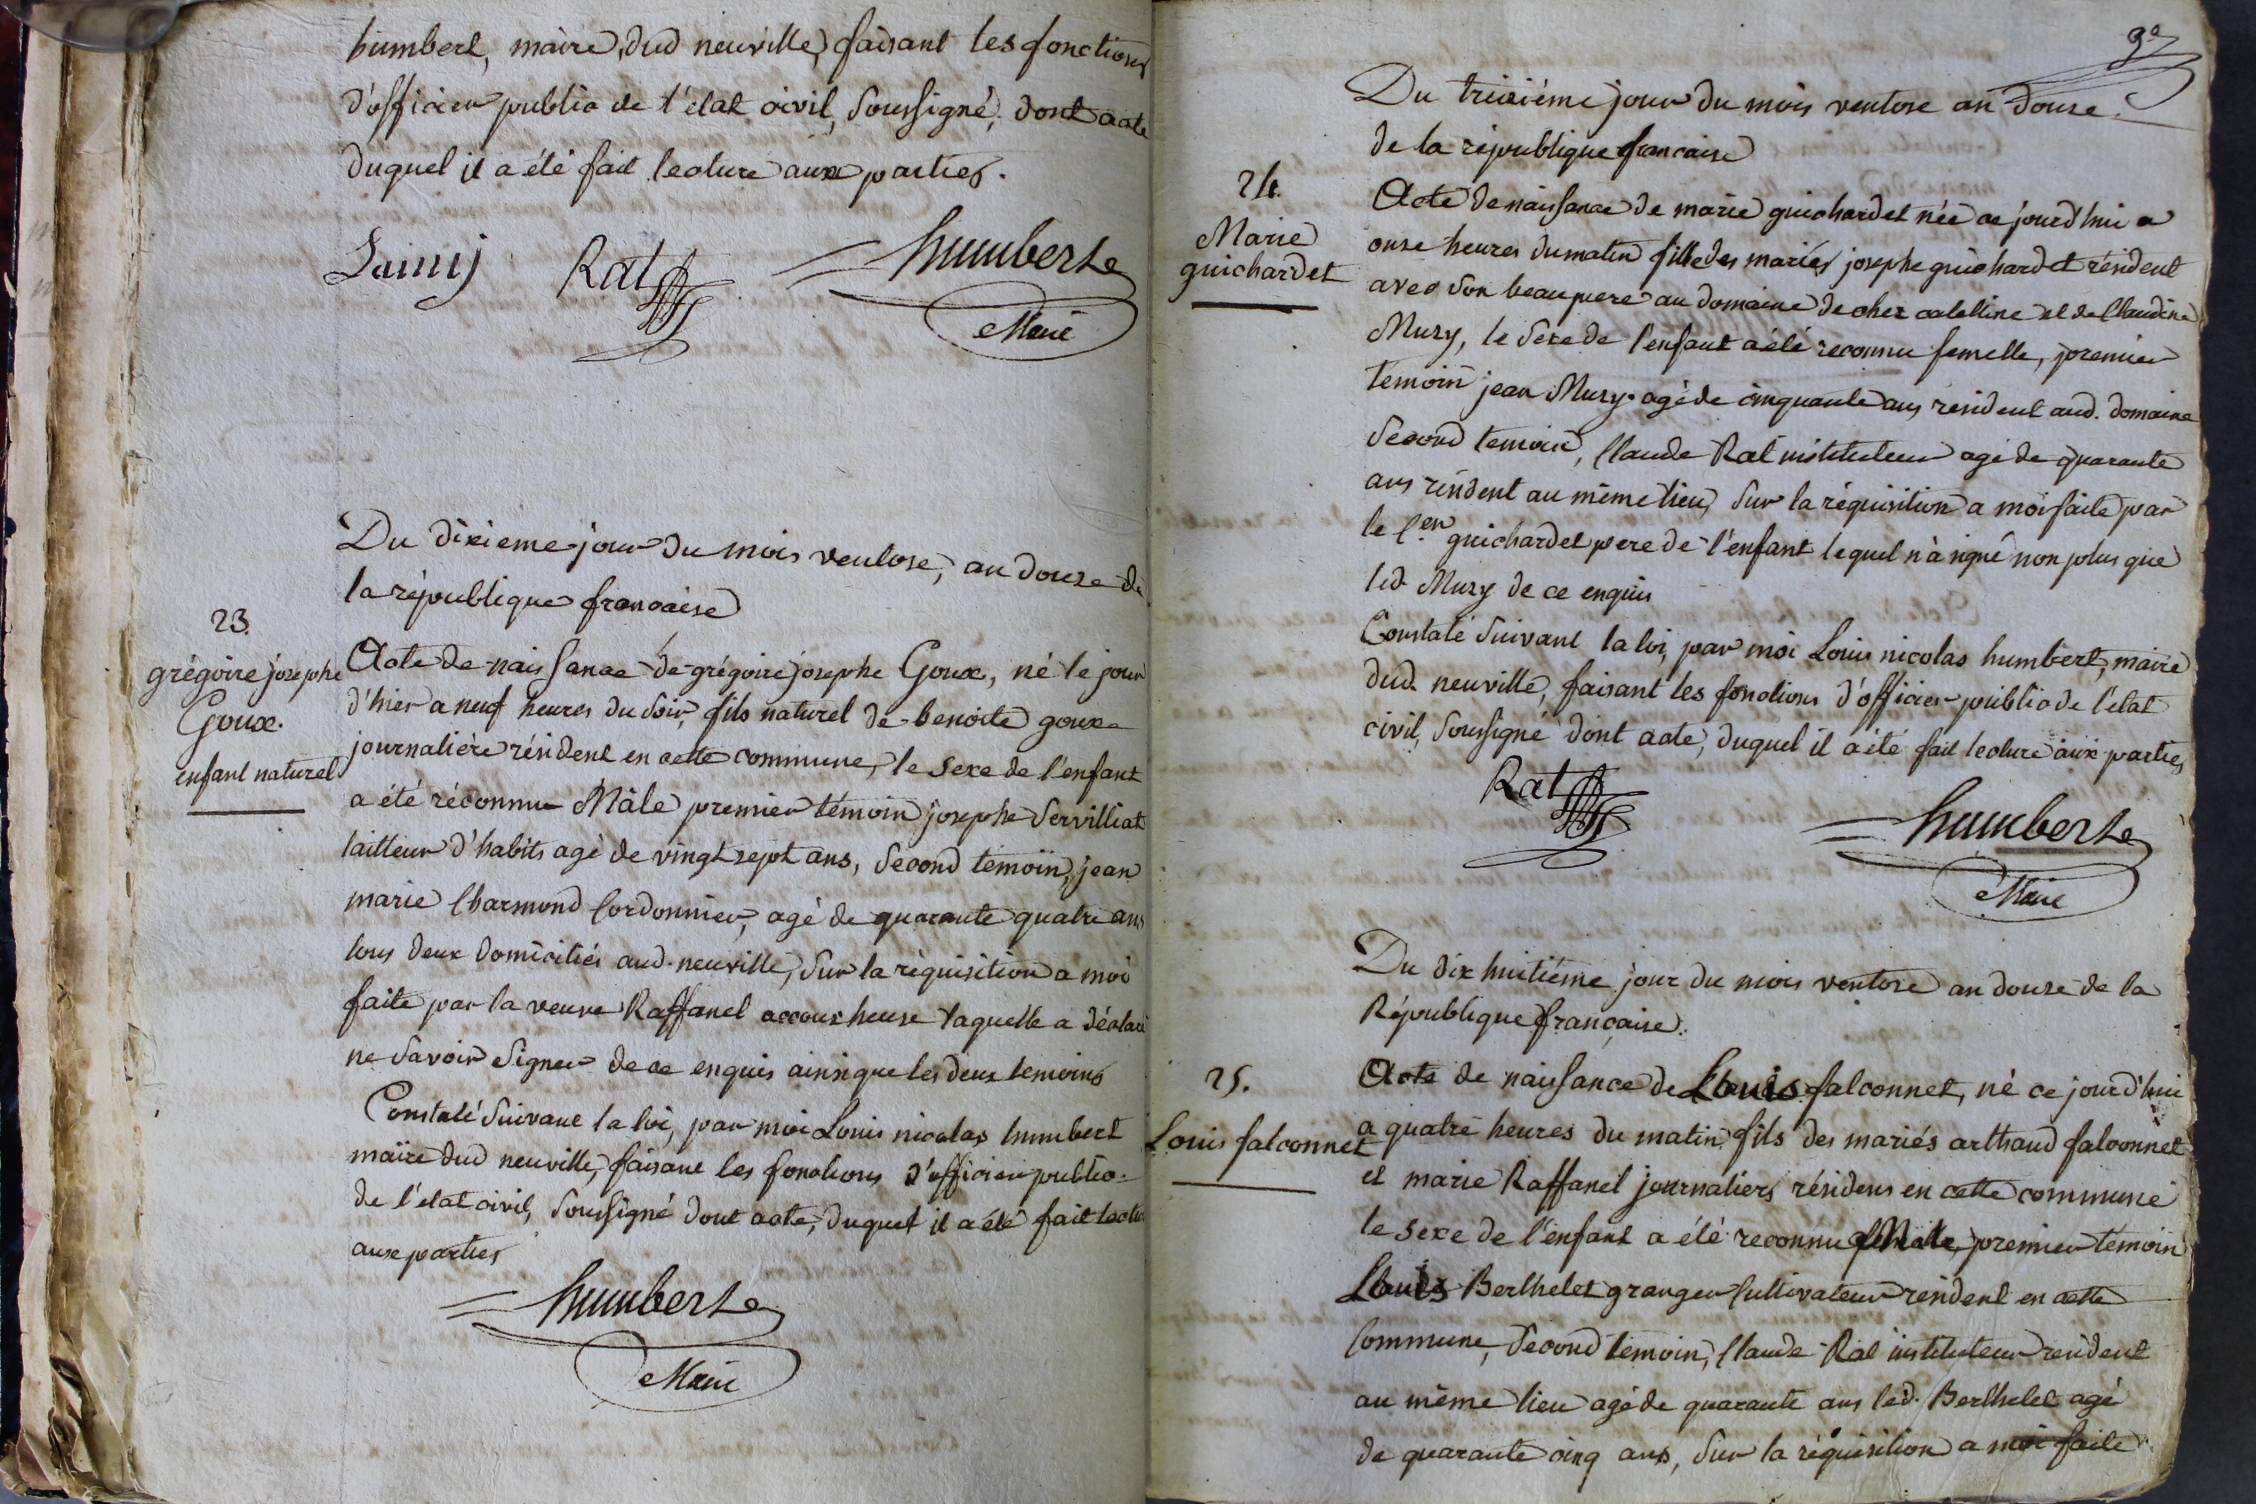 humbert, maire dud neuville, faisant les fonctions
d'officier public de l'état civil, soussigné, dont acte
duquel il a été fait lecture aux parties.
Rat
humbert
Maire
Du dixieme jour du mois ventose, an douze de
la république francaise
23.
grégoire josephe
Goux.
enfant naturel
Acte de naissance de grégoire josephe Goux, né le jour
d'hier a neuf heures du soir, fils naturel de benoite goux
journalière résident en cette commune, le sexe de l'enfant
a été réconnu Mâle premier témoin josephe Servilliat
tailleur d'habits agé de vingt sept ans, second témoin, jean
marie Charmond Cordonnier, agé de quarante quatre ans
tous deux domiciliés aud. neuville, sur la réquisition a moi
faite par la veuve Raffanel accoucheuse laquelle a déclaré
ne savoir signer de ce enquis ainsi que les deux temoins
Constaté suivant la loi, par moi Louis nicolas humbert
maire dud neuville, faisant les fonctions d'officier public
de l'état civil, soussigné dont acte, duquel il a été fait lecture
aux parties
humbert
Maire
32
Du treizième jour du mois ventose an douze
de la république francaise
24.
Marie
guichardet
Acte de naissance de marie guichardet née ce jourd'hui a
onze heures du matin fille des mariés josephe guichardet résident
avec son beaupere au domaine de chez catelline et de Claudine
Muzy, le sexe de l'enfant a été reconnu femelle, premier
temoin jean Muzy agé de cinquante ans résident aud. domaine
second temoin, Claude Rat instituteur agé de quarante
ans résident au même lieu, sur la réquisition a moi faite par
le C.en guichardet pere de l'enfant lequel n'a signé non plus que
led. Muzy de ce enquis
Constaté suivant la loi, par moi Louis nicolas humbert, maire
dud. neuville, faisant les fonctions d'officier public de l'etat
civil, soussigné dont acte, duquel il a été fait lecture aux parties
Rat
humbert
Maire
Du dix huitiéme jour du mois ventose an douze de la
République française.
25.
Louis falconnet
Acte de naissance de Louis falconnet, né ce jourd'hui
a quatre heures du matin fils des mariés arthaud falconnet
et marie Raffanel journaliers résidens en cette commune
le sexe de l'enfant a été reconnu Mâle, premier témoin
Louis Berthelet granger Cultivateur résident en cette
Commune, second temoin, Claude Rat instituteur resident
au même lieu agé de quarante ans led. Berthelet agé
de quarante cinq ans, sur la réquisition a moi faite